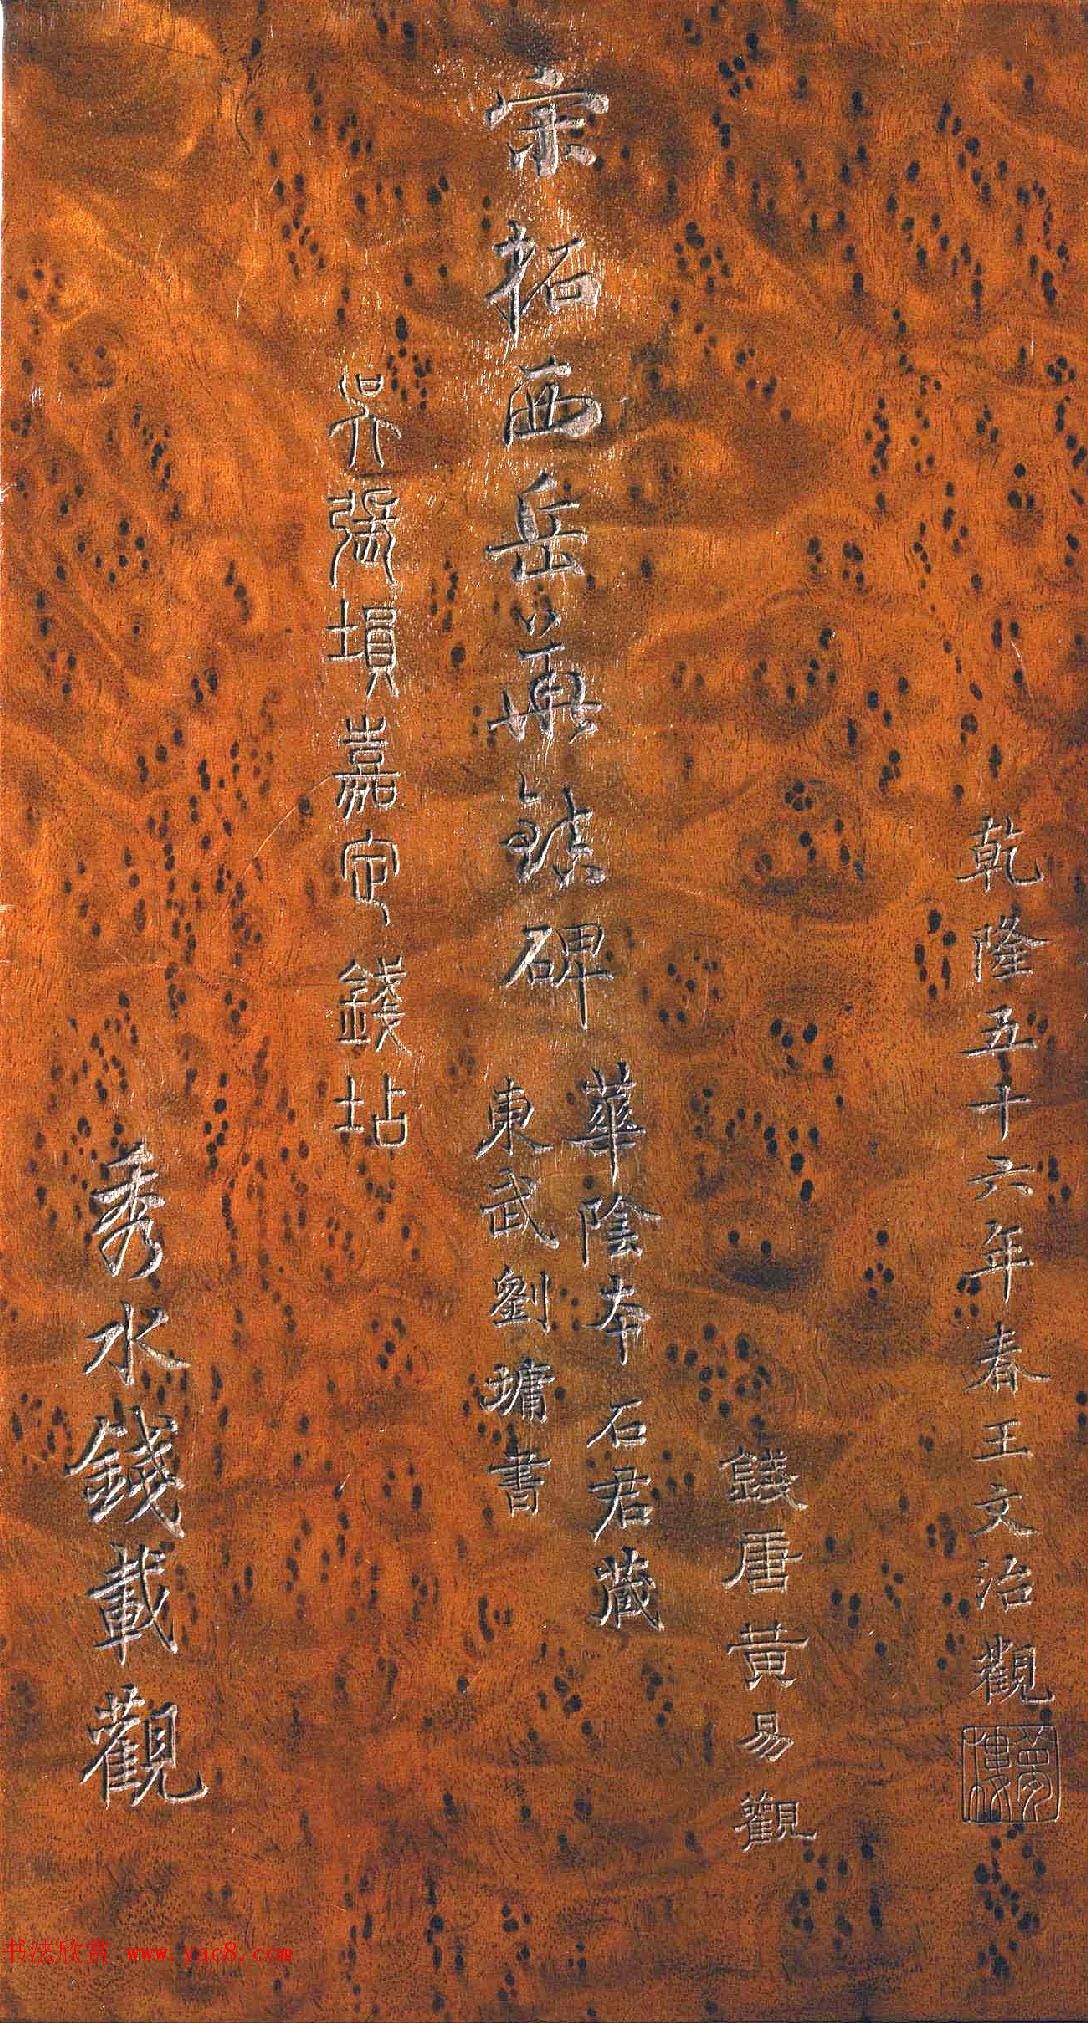 乾隆五十六年春王文治觀
夢樓
錢唐黃易觀
宋拓西岳華嶽碑
華陰本石君藏
東武劉墉書
吳張塤嘉定錢坫
秀水錢載觀
书法欣赏 www.yac8.com